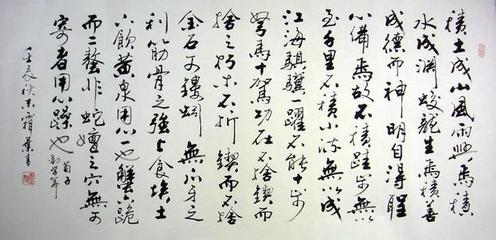 積土成山風雨興焉積
水成淵蛟龍生焉積善
成德而神明自得聖
心備焉故不積跬步無以
至千里不積小流無以成
江海騏驥一躍不能十步
駑馬十駕功在不舍鍥而
舍之朽木不折鍥而不舍
金石可鏤蚓無爪牙之
利筋骨之強上食埃土
下飲黃泉用心一也蟹六跪
而二螯非蛇蟺之穴無可
寄者用心躁也 荀子勸學篇
壬辰秋末霜葉書